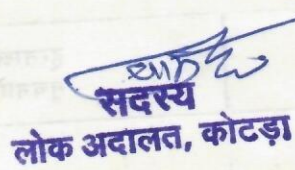 सदस्य
लोक अदालत, कोटड़ा